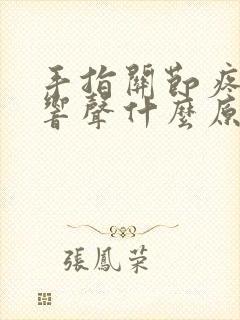 手指關節疼
響聲什麼原
張鳳荣